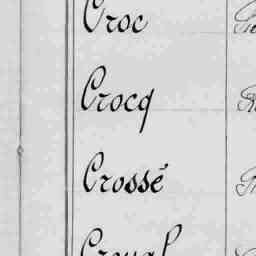 Croc
Crocq
Crossé